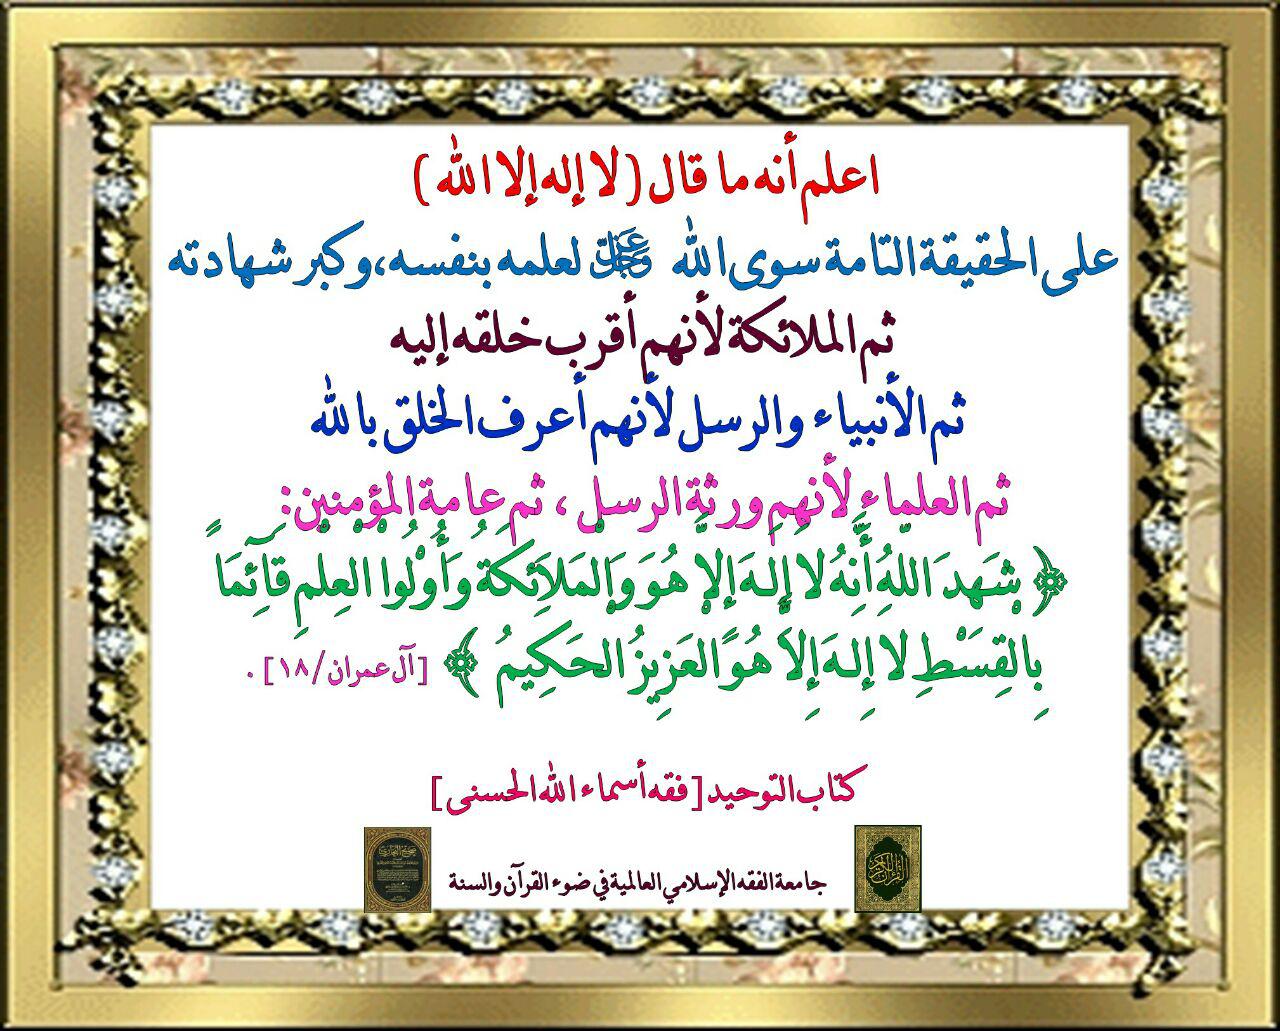 اعلم أنه ما قال (لا إله إلا الله)
على الحقيقة التامة سوى الله عَزَّ وَجَلَّ لعلمه بنفسه، وكبر شهادته
ثم الملائكة لأنهم أقرب خلقه إليه
ثم الأنبياء والرسل لأنهم أعرف الخلق بالله
ثم العلماء لأنهم ورثة الرسل ، ثم عامة المؤمنين:
﴿ شَهِدَ اللَّهُ أَنَّهُ لا إِلَهَ إِلاَّ هُوَ وَالْمَلَائِكَةُ وَأُوْلُوا الْعِلْمِ قَآئِمَاً
بِالقِسْطِ لا إِلهَ إِلاَّ هُوَ العَزِيزُ الحَكِيمُ ﴾ [آل عمران/١٨] .
كتاب التوحيد [فقه أسماء الله الحسنى]
القرآن الكريم
جامعة الفقه الإسلامي العالمية في ضوء القرآن والسنة
صحيح البخاري